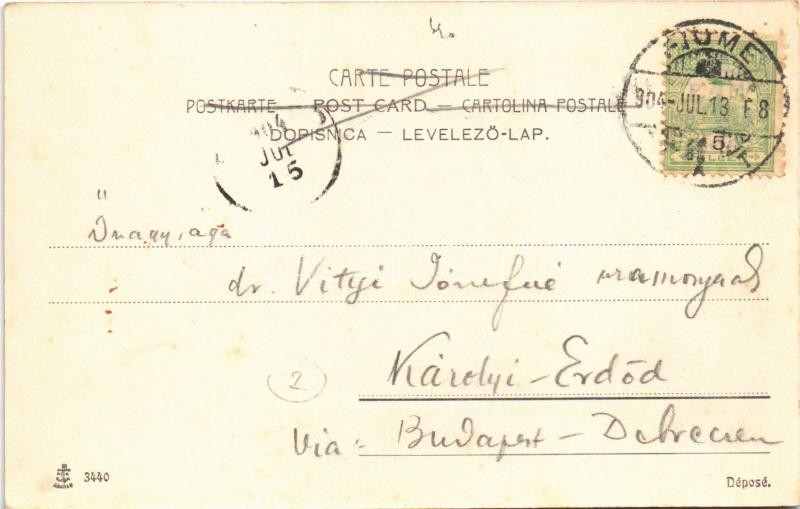 CARTE POSTALE
POSTKARTE — POST CARD — CARTOLINA POSTALE
DOPISNICA — LEVELEZŐ-LAP.
FIUME
904-JUL.13 F8
5
A
904
JUL
15
Őnagysága
dr. Vityi Józsefné
Károlyi-Erdőd
2
Via = Budapest - Debreczen
3440
Déposé.